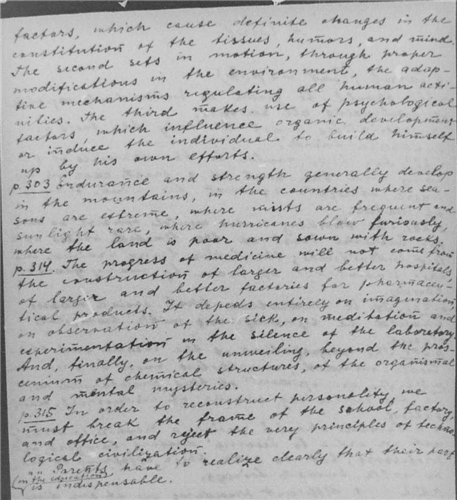 factors, which cause definite changes in the
constitution of the tissues, humors, and mind.
The second sets in motion, through proper
modifications in the environment, the adap-
tive mechanisms regulating all human acti-
vities. The third makes use of psychological
factors, which influence organic development
or induce the individual to build himself
up by his own efforts.
p.303 Endurance and strength generally develop
in the mountains, in the countries where sea-
sons are extreme, where mists are frequent and
sunlight rare, where hurricanes blow furiously,
where the land is poor and sown with rocks.
p.314. The progress of medicine will not come from
the construction of larger and better hospitals
of larger and better factories for pharmaceu-
tical products. It depeds entirely on imagination
on observation of the sick, on meditation and
experimentation in the silence of the laboratory
And, finally, on the unveiling, beyond the pros-
cenium of chemical structures, of the organismal
and mental mysteries.
p.315 In order to reconstruct personality, we
must break the frame of the school, factory,
and office, and reject the very principles of techno-
logical civilization.
" " Parents have to realize clearly that their part
(in the education) is indispensable.